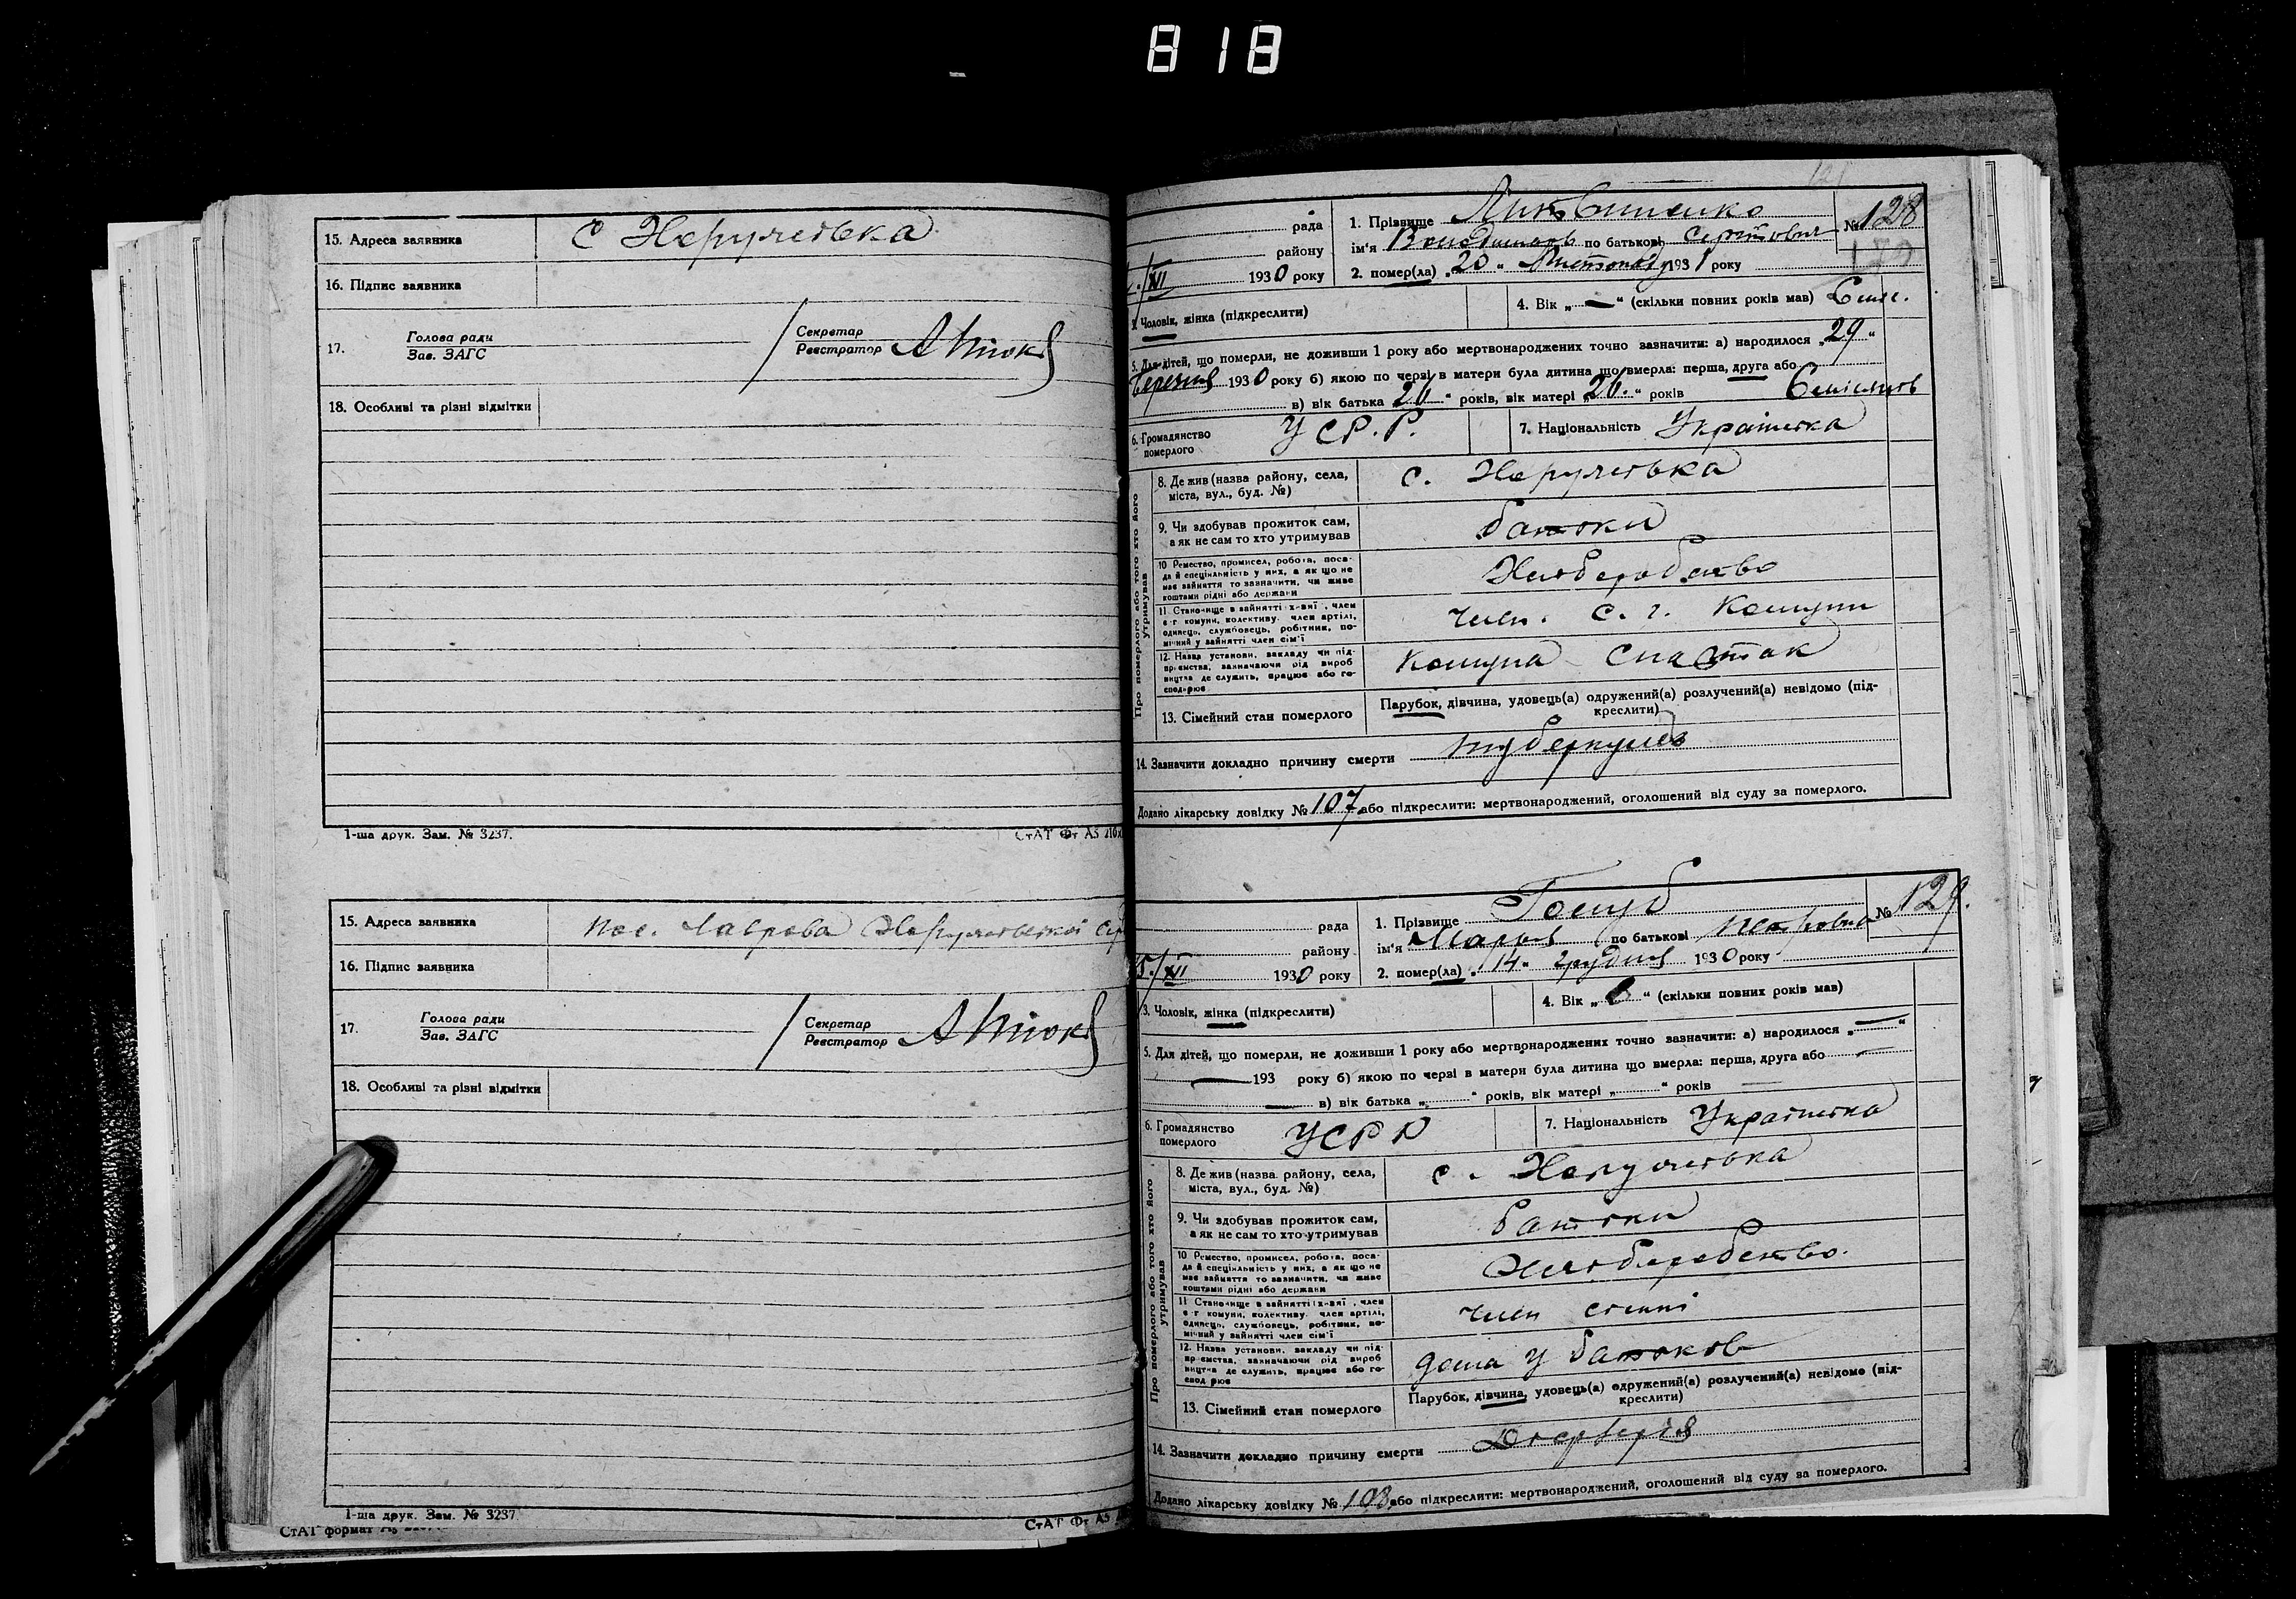 818
15. Адреса заявника
с
16. Підпис заявника
17. Голова ради
Зав. ЗАГС
Секретар
Реєстратор
18. Особливі та різні відмітки
1-ша друк. Зам. № 3237.
СтАТ Фт А5
15. Адреса заявника
пос.
16. Підпис заявника
17. Голова ради
Зав. ЗАГС
Секретар
Реєстратор
18. Особливі та різні відмітки
1-ша друк. Зам. № 3237
СтАТ формат
СтАТ Фт А5
121
рада
району
XII 1930 року
1. Прізвище Литвиненко
№ 128
ім'я Володимирь по батькові
2. помер(ла) „20„ Листопаду 1931 року
3. Чоловік, жінка (підкреслити)
4. Вік „—“ (скільки повних років мав) 6 міс.
5. Для дітей, що померли, не доживши 1 року або мертвонароджених точно зазначити: а) народилося „29“
Березня 1930 року б) якою по черзі в матери була дитина що вмерла: перша, друга або
в) вік батька 26“ років, вік матері „26.“ років
6. Громадянство
померлого
УСР.Р.
7. Національність Українська
Про померлого або того хто його
утримував
8. Де жив (назва району, села,
міста, вул., буд. №)
с.
9. Чи здобував прожиток сам,
а як не сам то хто утримував
батьки
10 Ремество, промисел, робота, поса-
да й спеціяльність у них, а як що не
має зайняття то зазначити, чи живе
коштами рідні або держави
Хліборобство
11 Становище в зайнятті х-вні, член
с-г комуни, колективу, член артілі,
одинець, службовець, робітник, по-
мічний у зайнятті член сім'ї
член. с. г. комуни
12. Назва установи, закладу чи під-
приємства, зазначаючи рід вироб
ництва де служить, працює або го-
сподарює
Комуна Спартак
13. Сімейний стан померлого
Парубок, дівчина, удовець(а) одружений(а) розлучений(а) невідомо (під-
креслити)
14. Зазначити докладно причину смерти туберкульоз
Додано лікарську довідку № 107 або підкреслити: мертвонароджений, оголошений від суду за померлого.
рада
району
15/XII 1930 року
1. Прізвище Голуб
№ 129.
ім'я Марья по батькові Петровна
2. помер(ла) „14„ грудня 1930 року
3. Чоловік, жінка (підкреслити)
4. Вік „6“ (скільки повних років мав)
5. Для дітей, що померли, не доживши 1 року або мертвонароджених точно зазначити: а) народилося „—“
193 року б) якою по черзі в матери була дитина що вмерла: перша, друга або —
в) вік батька „ “ років, вік матері „ “ років
6. Громадянство
померлого
УСРР
7. Національність Українська
Про померлого або того хто його
утримував
8. Де жив (назва району, села,
міста, вул., буд. №)
с.
9. Чи здобував прожиток сам,
а як не сам то хто утримував
Батьки
10 Ремество, промисел, робота, поса-
да й спеціяльність у них, а як що не
має зайняття то зазначити, чи живе
коштами рідні або держави
Хліборобство.
11 Становище в зайнятті х-вні, член
с-г комуни, колективу, член артілі,
одинець, службовець, робітник, по-
мічний у зайнятті член сім'ї
член сем'ї
12. Назва установи, закладу чи під-
приємства, зазначаючи рід вироб
ництва де служить, працює або го-
сподарює
дома у батьков
13. Сімейний стан померлого
Парубок, дівчина, удовець(а) одружений(а) розлучений(а) невідомо (під-
креслити)
14. Зазначити докладно причину смерти
Додано лікарську довідку № 108 або підкреслити: мертвонароджений, оголошений від суду за померлого.